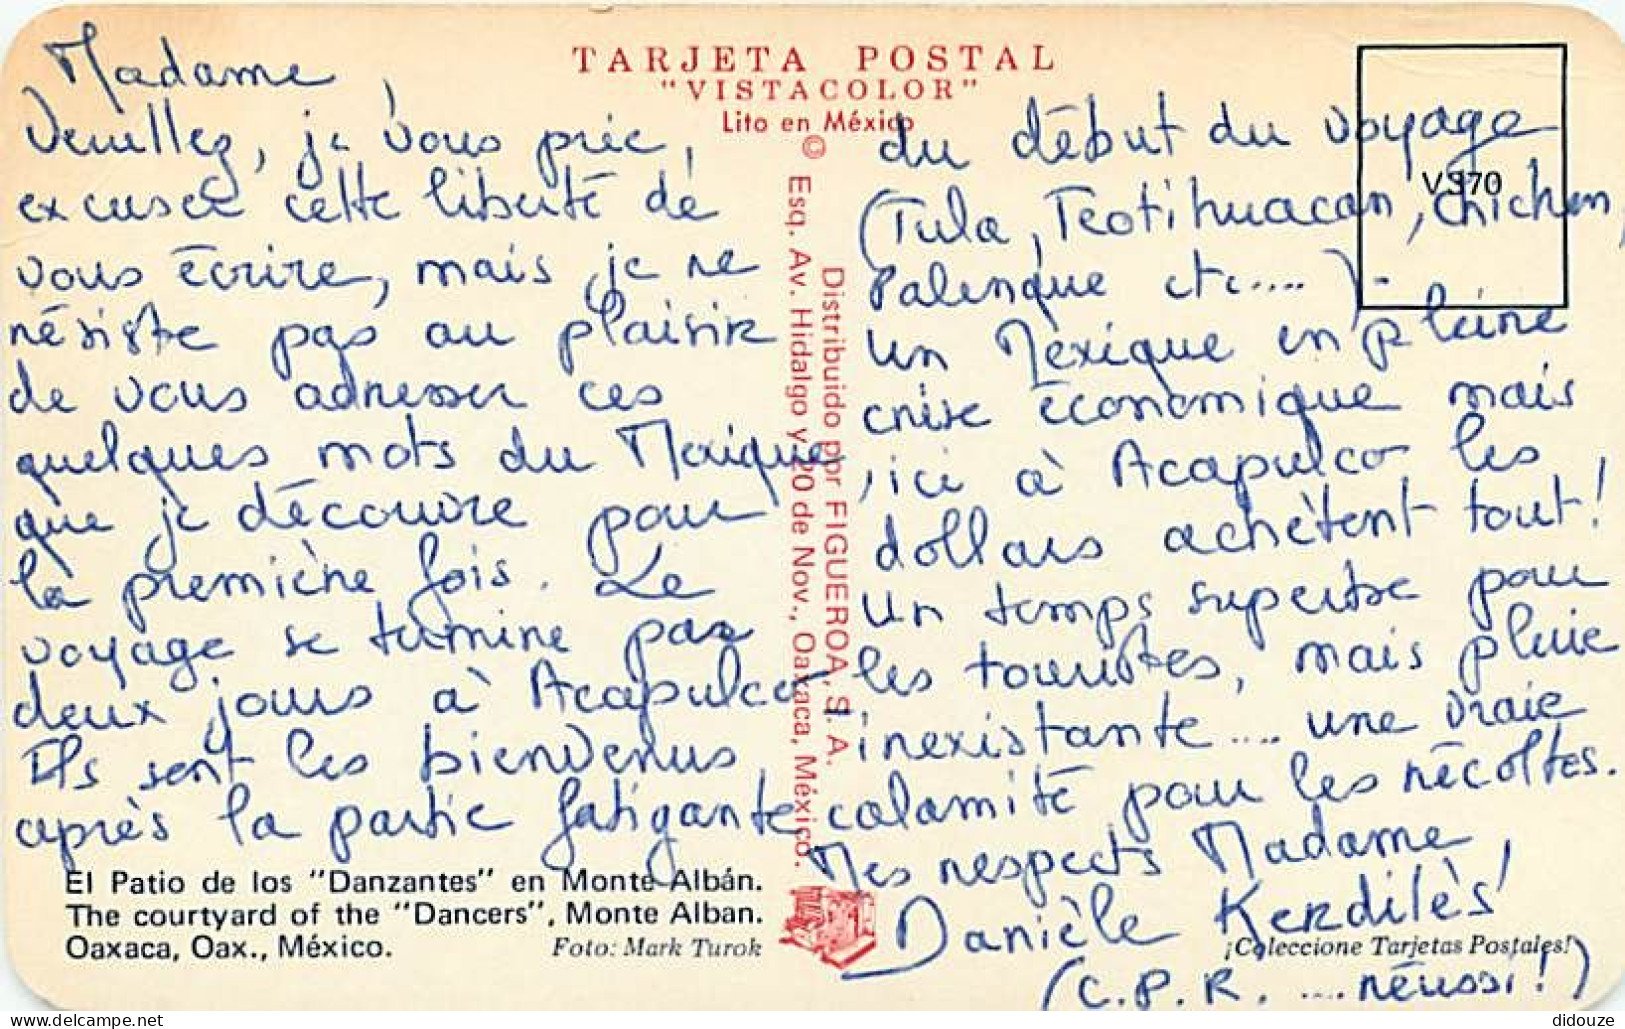 TARJETA POSTAL
"VISTACOLOR"
Lito en México
Madame,
Veuillez, je vous prie,
excuser cette liberté de
vous écrire, mais je ne
résiste pas au plaisir
de vous adresser ces
quelques mots du Mexique
que je découvre pour
la première fois. Le
voyage se termine par
deux jours à Acapulco
Ils sont les bienvenus
après la partie fatigante
du début du voyage
(Tula, Teotihuacan, Chichen,
Palenque etc.... ).
Un Mexique en pleine
crise économique mais
ici à Acapulco les
dollars achètent tout!
Un temps superbe pour
les touristes, mais pluie
inexistante.... une vraie
calamité pour les récoltes.
Mes respects Madame,
Danièle Kerdilès
(C.P.R. .... réussi!)
V370
© Distribuido por FIGUEROA, S. A.
Esq. Av. Hidalgo y 20 de Nov., Oaxaca, México.
El Patio de los "Danzantes" en Monte Albán.
The courtyard of the "Dancers", Monte Alban.
Oaxaca, Oax., México. Foto: Mark Turok
¡Coleccione Tarjetas Postales!
delcampe.net
didouze